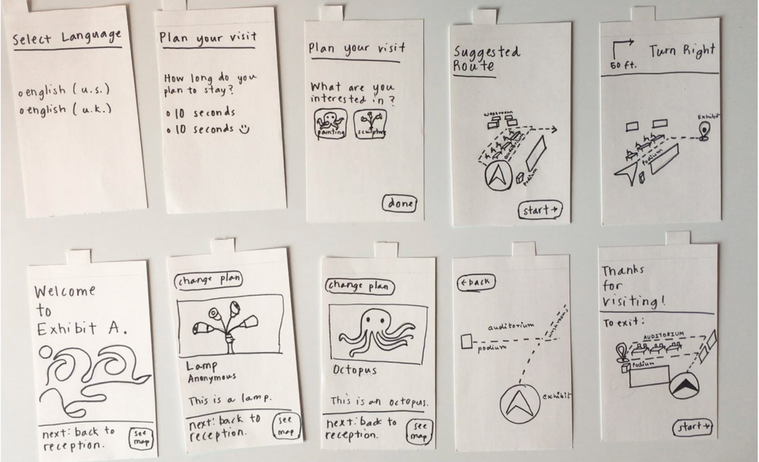 Select Language
english (u.s.)
english (u.k.)
Plan your visit
How long do you
plan to stay?
10 seconds
10 seconds ☺
Plan your visit
What are you
interested in?
painting
sculpture
done
Suggested
Route
washroom
Podium
start →
50 ft.
Turn Right
Exhibit
Podium
Welcome
to
Exhibit A.
next: back to
reception.
see
map
change plan
Lamp
Anonymous
This is a lamp.
next: back to
reception.
see
map
change plan
Octopus
This is an octopus.
next: back to
reception.
see
map
← back
auditorium
podium
exhibit
Thanks
for
visiting!
To exit:
AUDITORIUM
Podium
start →